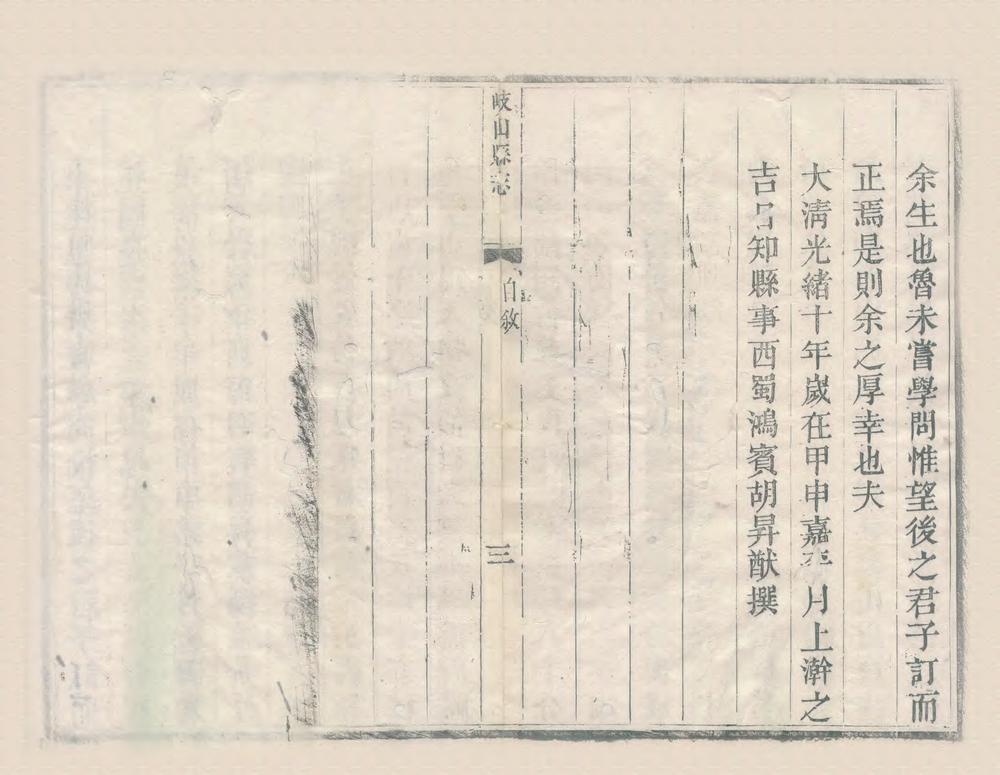 余生也魯未嘗學問惟望後之君子訂而
正焉是則余之厚幸也夫
大淸光緖十年歲在甲申嘉平月上澣之
吉日知縣事西蜀鴻賓胡昇猷撰
岐山縣志
自敘
三